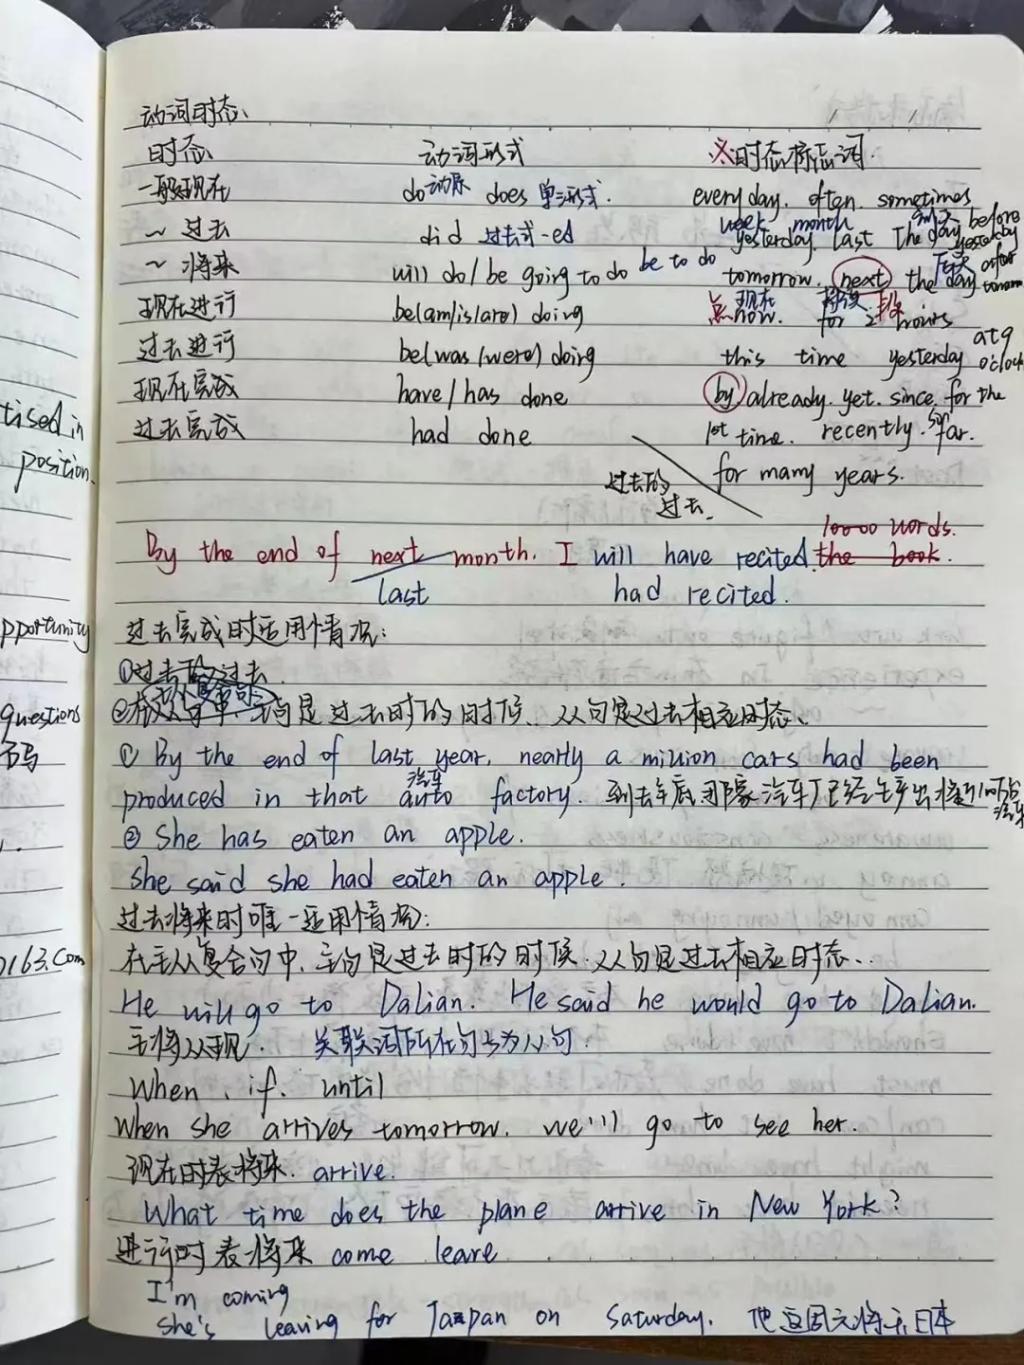 动词时态
时态 动词形式 时态标志词
一般现在 do 动原 does 单三形式. every day. often. sometimes
week month 前天 before
~ 过去 did 过去式-ed yesterday. last The day yesterday
~ 将来 will do/be going to do be to do tomorrow. next the day 后天 after
现在进行 be(am/is/are) doing 点 now. 现在 for 2 hours 持续 段
过去进行 be(was/were) doing this time yesterday at 9 o'clock
现在完成 have/has done by already. yet. since. for the
过去完成 had done 1st time. recently. so far.
过去的过去. for many years.
10000 words.
By the end of next month. I will have recited. the book.
last had recited.
过去完成时运用情况:
①过去的过去.
主句是过去时的时候、从句是过去相应时态、
① By the end of last year, nearly a million cars had been
汽车
produced in that auto factory. 到去年底那家汽车厂已经生产出将近100万台汽车
② She has eaten an apple.
She said she had eaten an apple.
过去将来时唯一运用情况:
在主从复合句中、主句是过去时的时候. 从句是过去相应时态..
He will go to Dalian. He said he would go to Dalian.
主将从现. 关联词所在句子为从句.
When. if. until
When she arrives tomorrow. we'll go to see her.
现在时表将来. arrive.
What time does the plane arrive in New York?
进行时表将来 come leave
I'm coming
She's leaving for Japan on Saturday. 他这周六将去日本
tised in
position.
pportunity
questions
书写
163.com